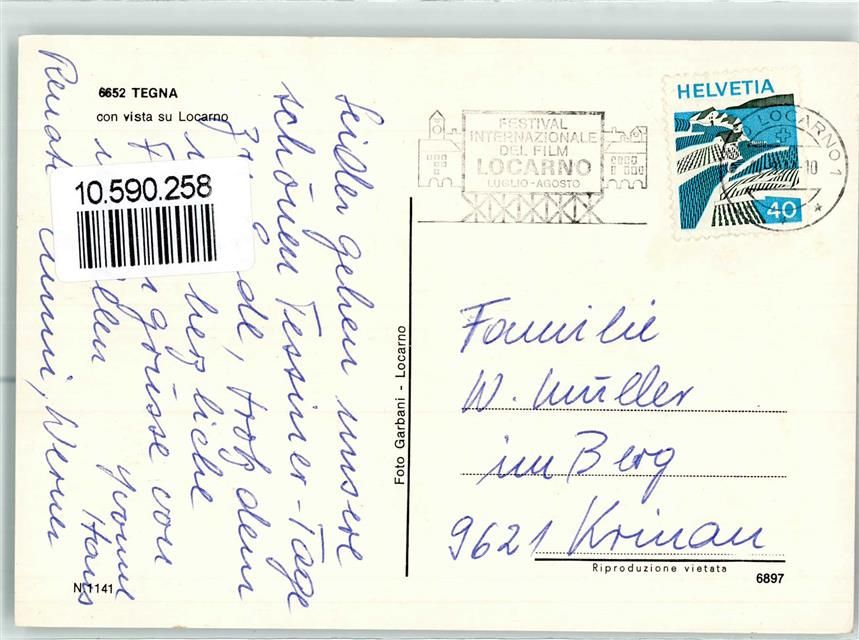 6652 TEGNA
con vista su Locarno
10.590.258
Leider gehen unsere
schönen Tessiner-Tage
zu Ende, trotz dem
herzliche
grüsse von
allen Yvonne
Renate, Werner
Hans
N. 1141
Foto Garbani - Locarno
FESTIVAL
INTERNAZIONALE
DEL FILM
LOCARNO
LUGLIO-AGOSTO
HELVETIA
40
LOCARNO 1
Familie
W. Müller
im Berg
9621 Krinau
Riproduzione vietata
6897